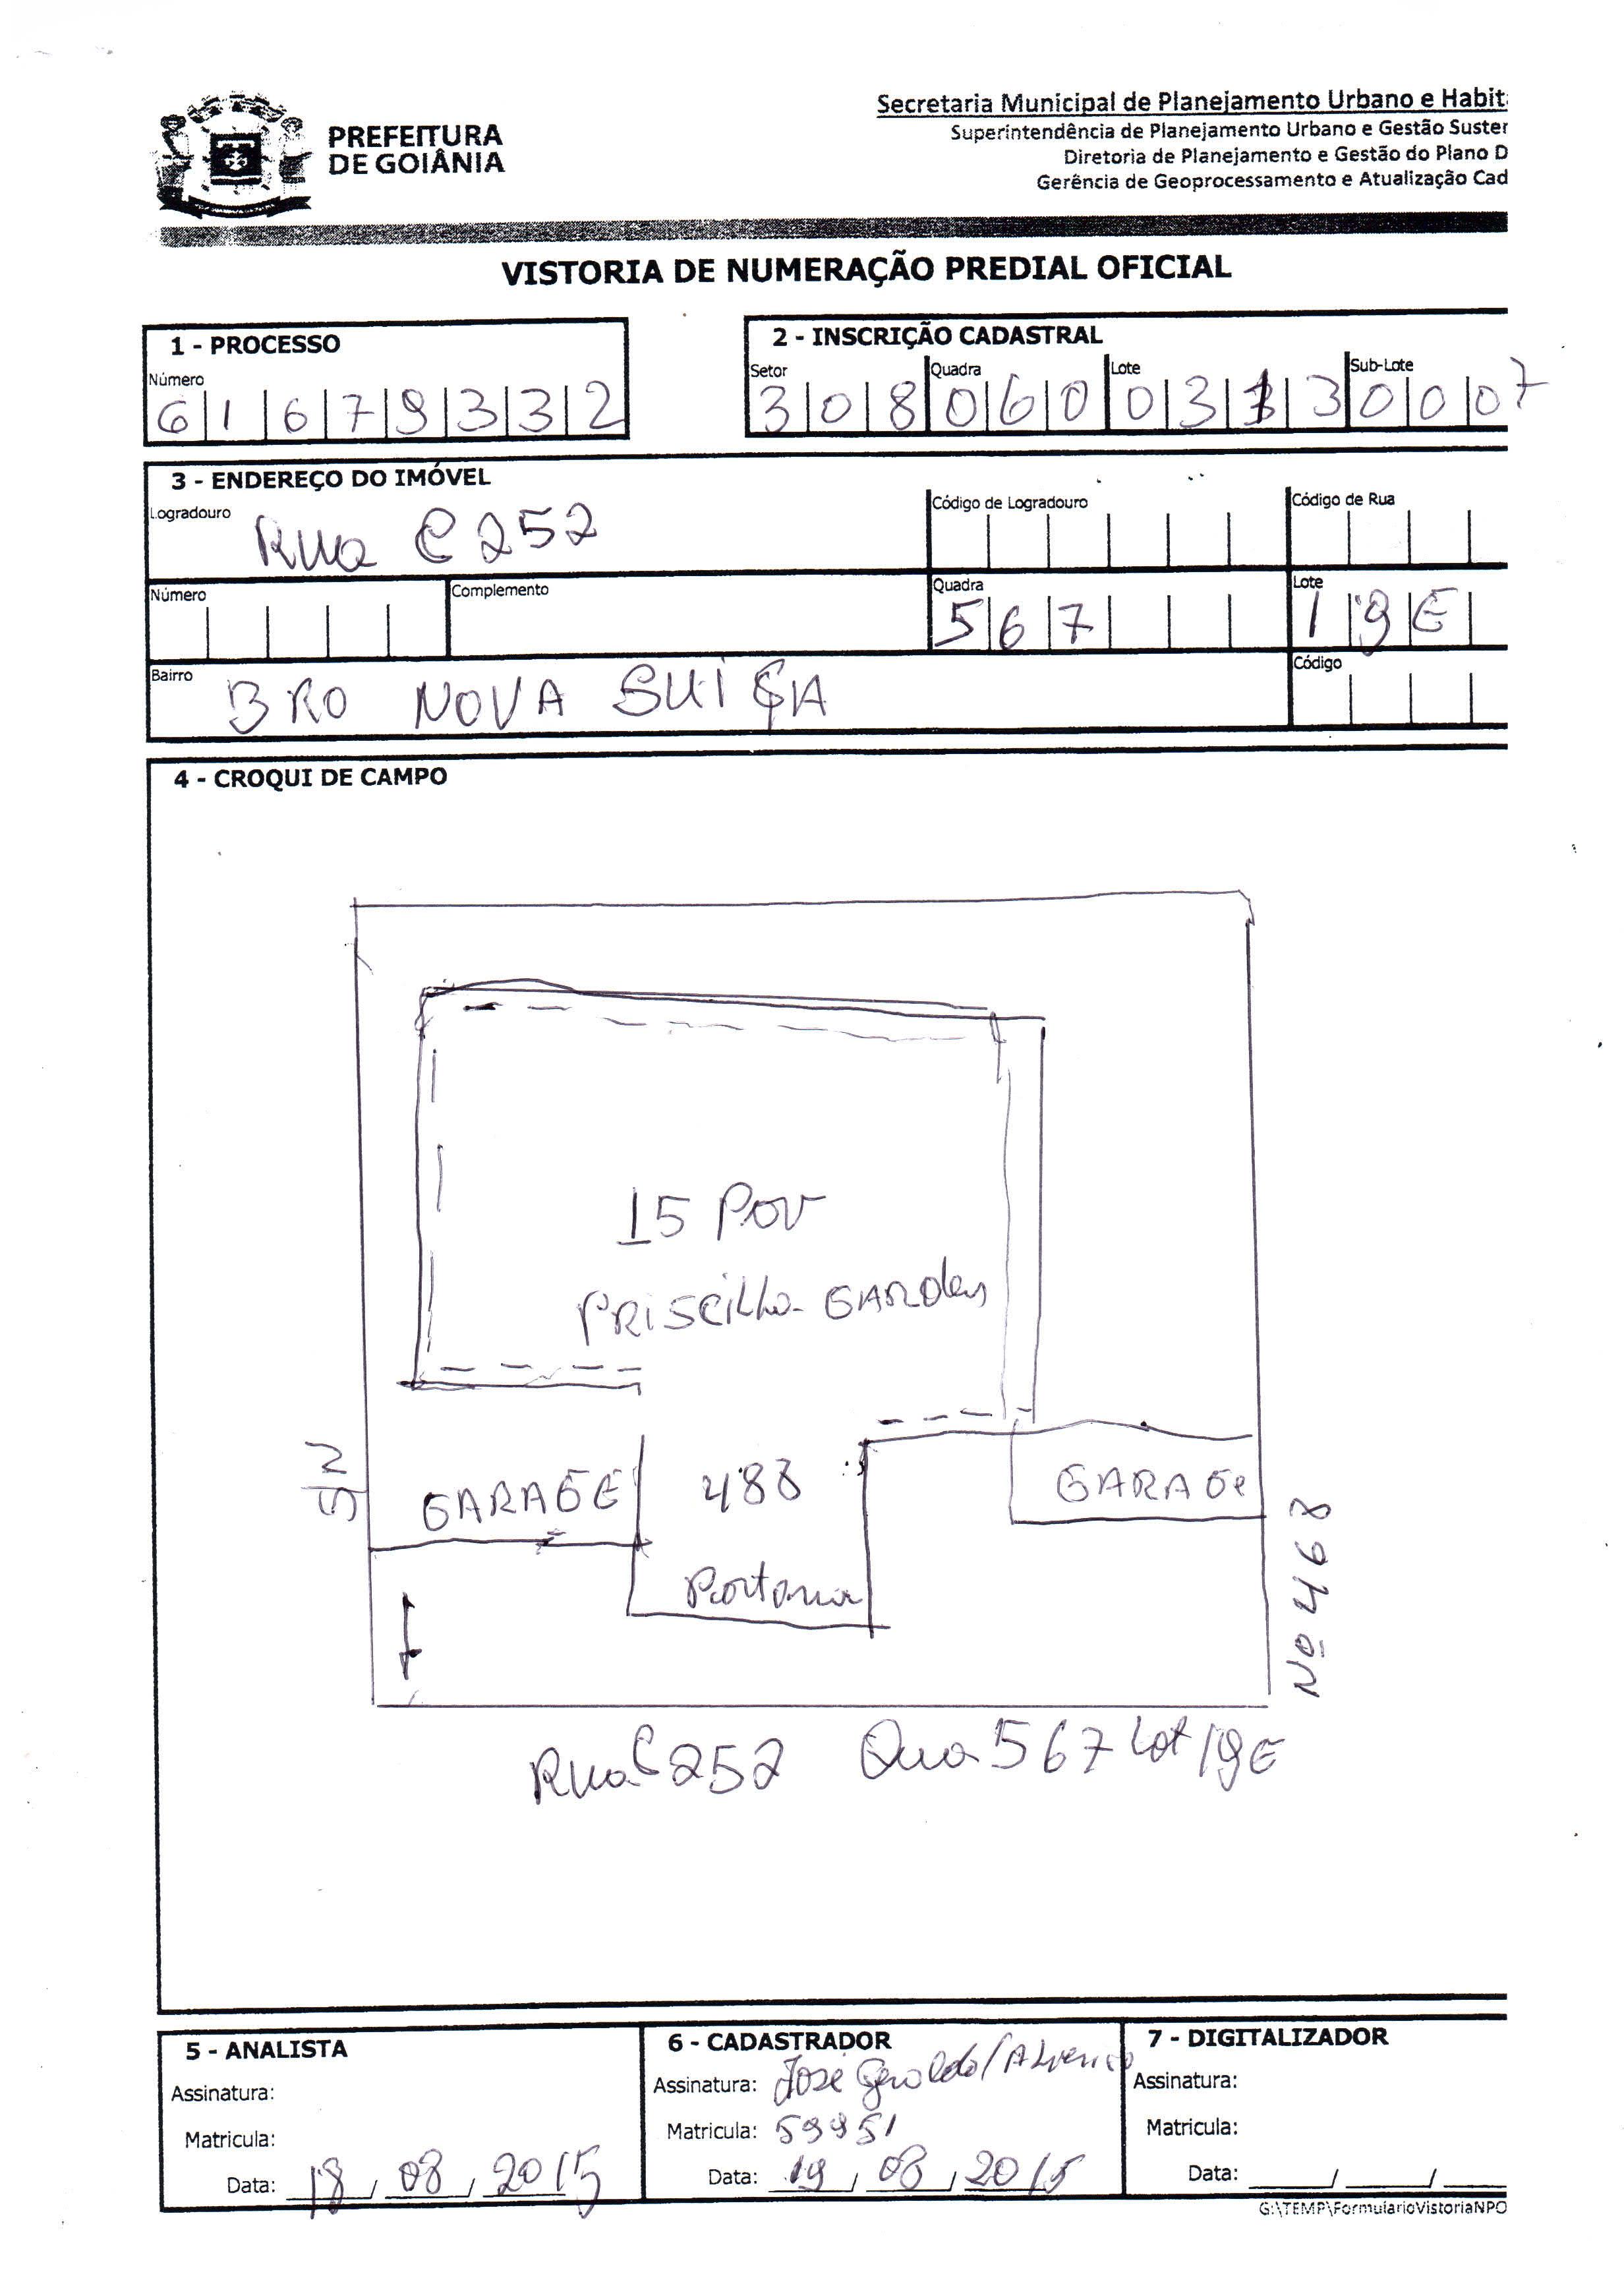 PREFEITURA
DE GOIÂNIA
Secretaria Municipal de Planejamento Urbano e Habit
Superintendência de Planejamento Urbano e Gestão Susten
Diretoria de Planejamento e Gestão do Plano D
Gerência de Geoprocessamento e Atualização Cad
VISTORIA DE NUMERAÇÃO PREDIAL OFICIAL
1 - PROCESSO
Número
61679332
2 - INSCRIÇÃO CADASTRAL
Setor Quadra Lote Sub-Lote
308 060 0313 0007
3 - ENDEREÇO DO IMÓVEL
Logradouro Rua C 252
Código de Logradouro
Código de Rua
Número
Complemento
Quadra 567
Lote 19E
Bairro BRO NOVA SUIÇA
Código
4 - CROQUI DE CAMPO
15 PAV
PRISCILLA GARDEN
S/N
GARAGE
488
GARAGE
Portaria
Nº 468
Rua C 252 Qua 567 Lot 19E
5 - ANALISTA
Assinatura:
Matricula:
Data: 18/08/2015
6 - CADASTRADOR
Assinatura: José Geraldo/
Matricula: 59951
Data: 19/08/2015
7 - DIGITALIZADOR
Assinatura:
Matricula:
Data: / /
G:\TEMP\FormularioVistoriaNPO